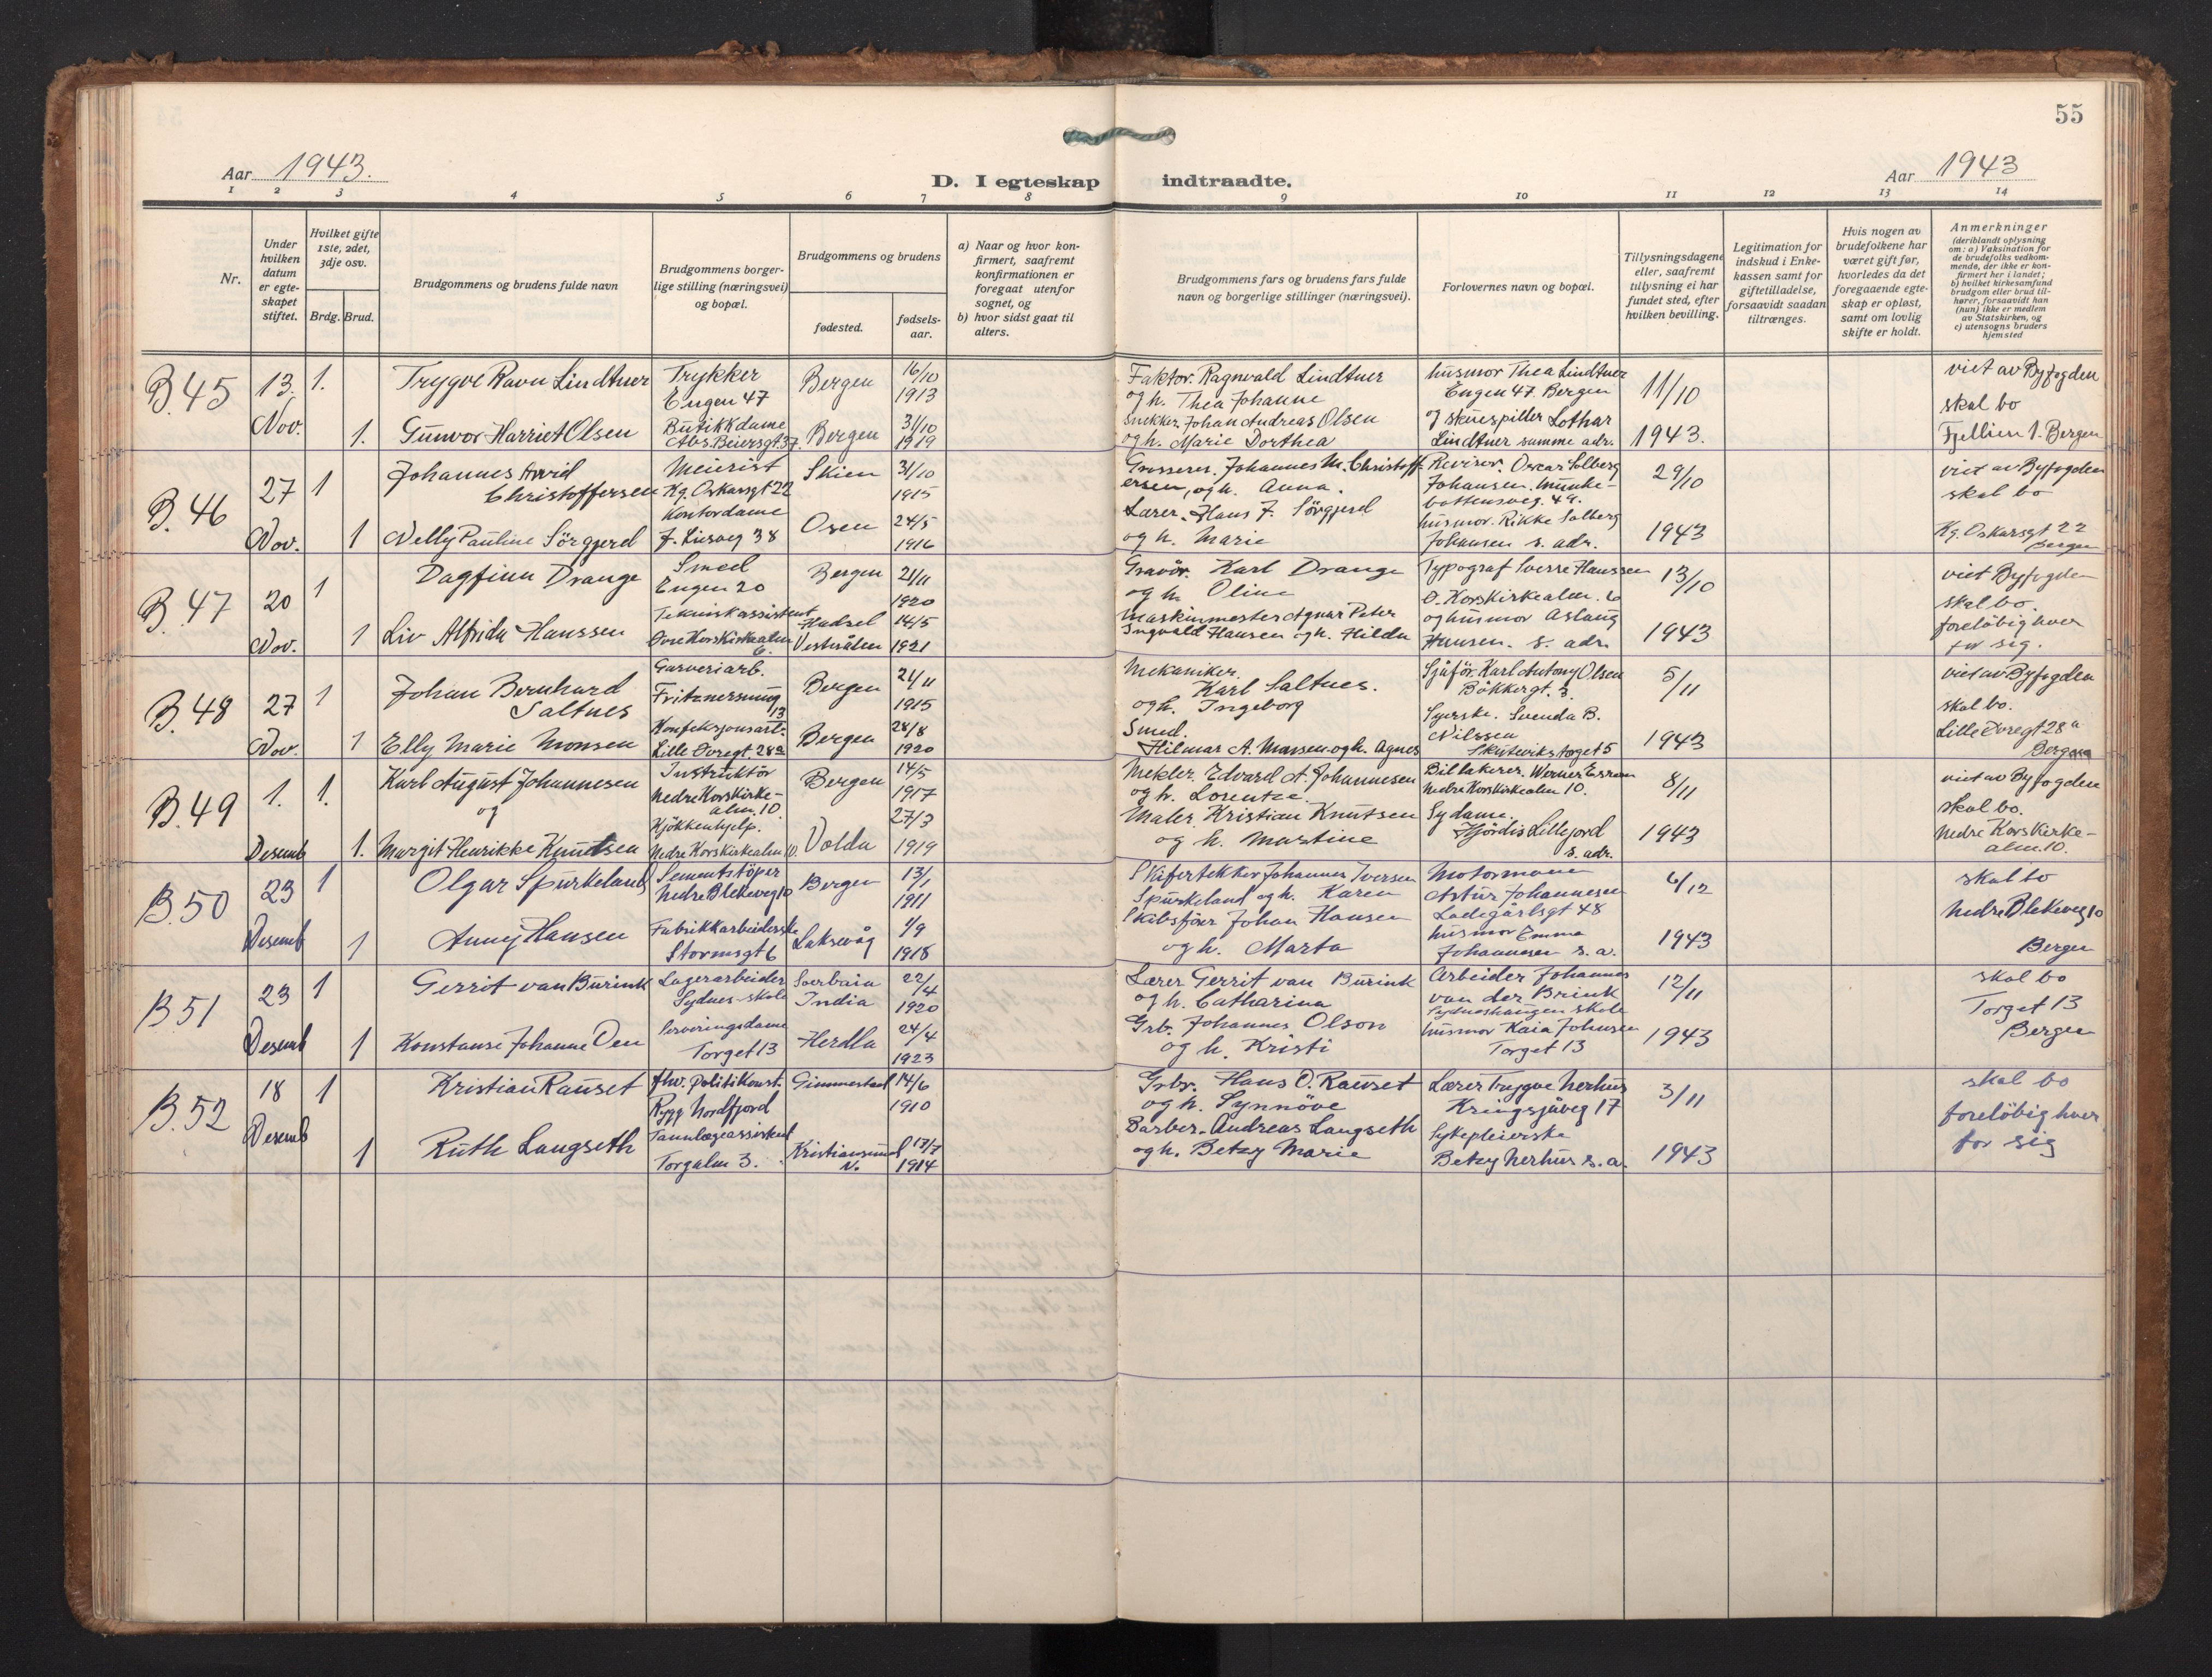 55
Aar 1943.
D. I egteskap indtraadte.
Aar 1943
1 2 3 4 5 6 7 8 9 10 11 12 13 14
Nr.
Under hvilken datum er egteskapet stiftet.
Hvilket gifte 1ste, 2det, 3dje osv.
Brdg. Brud.
Brudgommens og brudens fulde navn
Brudgommens borgerlige stilling (næringsvei) og bopæl.
Brudgommens og brudens
fødested.
fødselsaar.
a) Naar og hvor konfirmert, saafremt konfirmationen er foregaat utenfor sognet, og
b) hvor sidst gaat til alters.
Brudgommens fars og brudens fars fulde navn og borgerlige stillinger (næringsvei).
Forlovernes navn og bopæl.
Tillysningsdagene eller, saafremt tillysning ei har fundet sted, efter hvilken bevilling.
Legitimation for indskud i Enkekassen samt for giftetilladelse, forsaavidt saadan tiltrænges.
Hvis nogen av brudefolkene har været gift før, hvorledes da det foregaaende egteskap er opløst, samt om lovlig skifte er holdt.
Anmerkninger
(deriblandt oplysning om: a) Vaksination for de brudefolks vedkommende, der ikke er konfirmert her i landet; b) hvilket kirkesamfund brudgom eller brud tilhører, forsaavidt han (hun) ikke er medlem av Statskirken, og c) utensogns bruders hjemsted
B.45 13. Nov. 1. Trygve Ravn Lindtner Trykker Engen 47 Bergen 16/10 1913 Faktor. Ragnvald Lindtner og h. Thea Johanne husmor Thea Lindtner Engen 47. Bergen 11/10 viet av Byfogden skal bo
1. Gunvor Harriet Olsen Butikkdame Abs. Beiersgt. 37. Bergen 31/10 1919 Snekker Johan Andreas Olsen og h. Marie Dorthea og skuespiller Lothar Lindtner samme adr. 1943. Fjellien 1. Bergen
B.46 27 Nov. 1 Johannes Arvid Christoffersen Meierist Kg. Oskarsgt 22 Skien 31/10 1915 Grosserer. Johannes M. Christoffersen, og h. Anna. Revisor. Oscar Solberg Johansen. Munkebottensveg. 49. 29/10 viet av Byfogden skal bo
1 Nelly Pauline Sörgjerd Kontordame J. Liesveg 38 Osen 24/5 1916 Lærer. Hans J. Sörgjerd og h. Marie husmor. Rikke Solberg Johansen s. adr. 1943 Kg. Oskarsgt 22 Bergen
B.47 20 Nov. 1 Dagfinn Drange Smed Engen 20 Bergen 21/11 1920 Gravör. Karl Drange og h. Oline Typograf Sverre Hanssen Ö. Korskirkealm. 6 13/10 viet Byfogden skal bo.
1 Liv Alfrida Hanssen Teknisk assistent Övre Korskirkealm 6. Hadsel Vesterålen 14/5 1921 Maskinmester Agnar Peter Ingvald Hansen og h. Hilda og husmor Aslaug Hansen. s. adr. 1943 foreløbig hver for sig.
B.48 27 Nov. 1 Johan Bernhard Saltnes Garveriarb. Fritznersmug 13 Bergen 24/11 1915 Mekaniker. Karl Saltnes. og h. Ingeborg Sjåför. Karl Antony Olsen Bökkergt. 3. 5/11 viet av Byfogden skal bo.
1 Elly Marie Monsen Konfeksjonsarb. Lille Övregt. 28a Bergen 28/8 1920 Smed. Hilmar A. Monsen og h. Agnes Syerske. Svenda B. Nilssen Skuteviks torget 5 1943 Lille Övregt 28a Bergen
B.49 1. Desemb 1. Karl August Johannesen og Instruktör Nedre Korskirkealm. 10. Bergen 14/5 1917 Mekler. Edvard A. Johannesen og h. Lorentze. Billakerer. Werner Nedre Korskirkealm 10. 8/11 viet av Byfogden skal bo.
1. Margit Henrikke Knutsen Kjökkenhjelp. Nedre Korskirkealm 10. Volda 27/3 1919 Maler. Kristian Knutsen og h. Martine Sydame. Hjördis Lillefjord s. adr. 1943 Nedre Korskirkealm. 10.
B.50 23 Desemb 1 Olgar Spurkeland Sementstöper Nedre Blekeveg 10 Bergen 13/1 1911 Skifertekker Johannes Iversen Spurkeland og h. Karen Motormann Astur Johannesen Ladegårdsgt 48 6/12 skal bo
1 Anny Hansen Fabrikkarbeiderske Stormsgt 6 Laksevåg 1/9 1918 Skibsförer Johan Hansen og h. Marta husmor Emma Johannesen s. a. 1943 Nedre Blekeveg 10 Bergen
B.51 23 Desemb 1 Gerrit van Burink Lagerarbeider Sydnes-skole Soerbaia India 22/4 1920 Lærer Gerrit van Burink og h. Catharina Arbeider Johannes van der Brink Sydneshaugen skole 12/11 skal bo
1 Konstanse Johanne Oen Serveringsdame Torget 13 Herdla 24/4 1923 Grb. Johannes Olson og h. Kristi husmor Kaia Johnsen Torget 13 1943 Torget 13 Bergen
B.52 18 Desemb 1 Kristian Rauset fhv. politikonst. Rygg Nordfjord Gimmestad 14/6 1910 Grbr. Hans O. Rauset og h. Synnöve Lærer Trygve Nerhus Kringsjåveg 17 3/11 skal bo
1 Ruth Langseth Tannlægeassistent Torgalm 3. Kristiansund N. 17/7 1914 Barber. Andreas Langseth og h. Betzy Marie Sykepleierske Betzy Nerhus s. a. 1943 foreløbig hver for sig